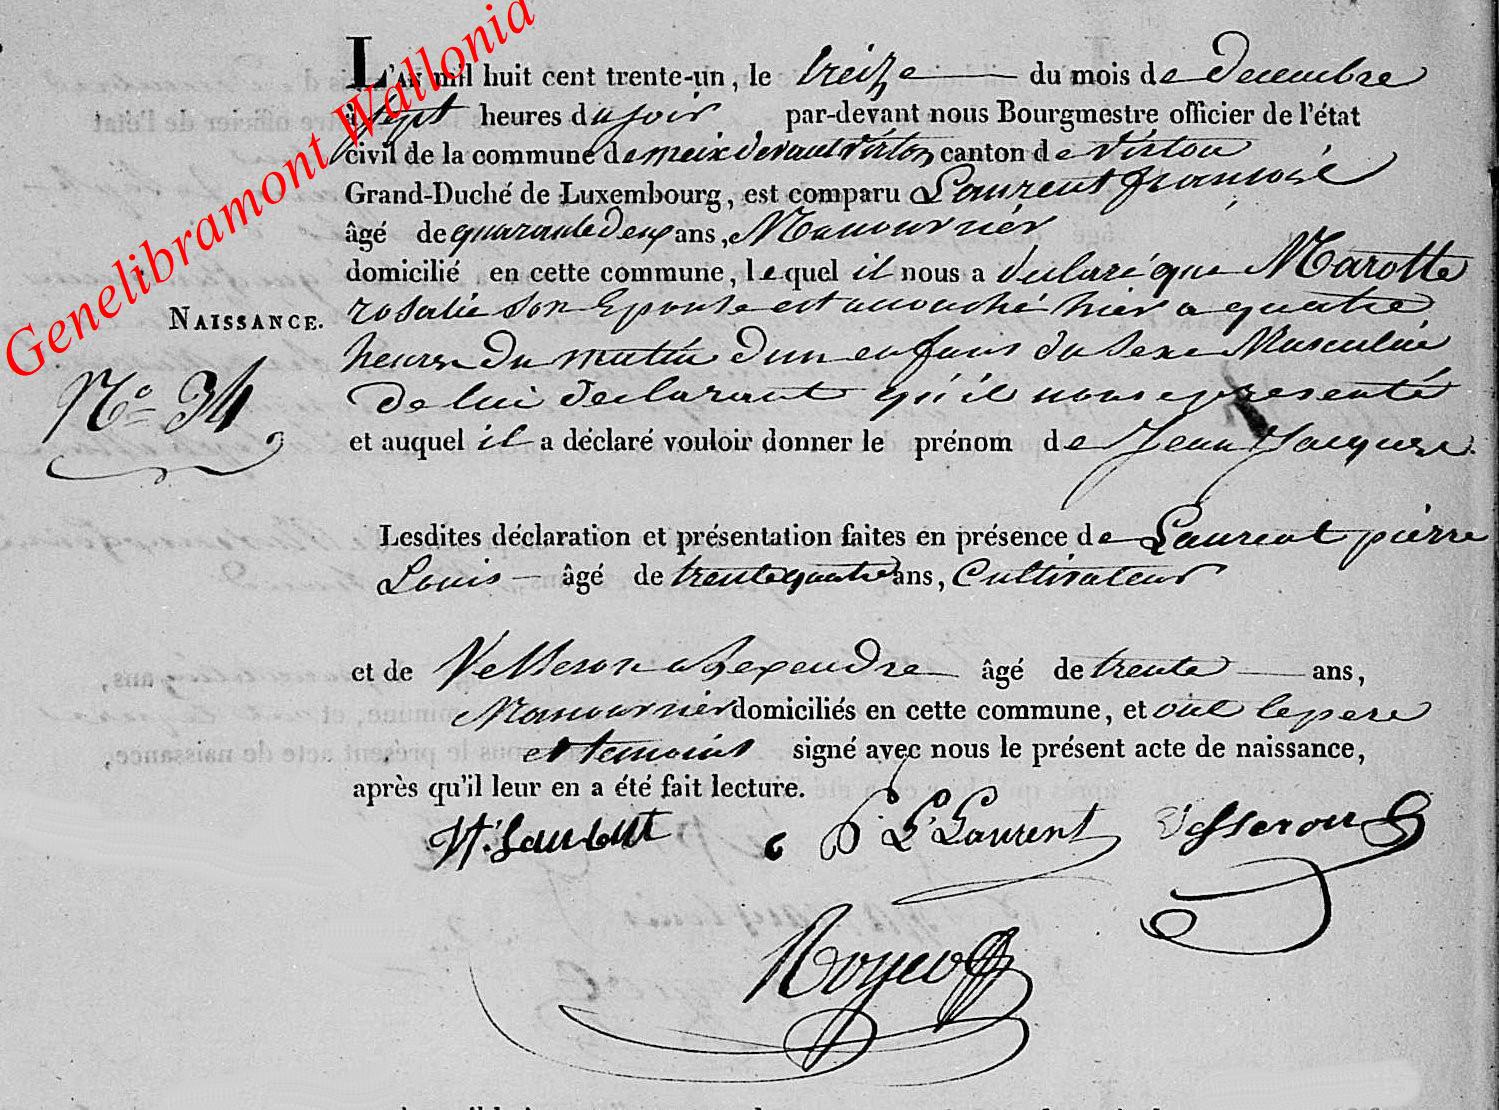 Genelibramont Wallonia
L'an mil huit cent trente-un, le treize du mois de decembre
à sept heures du soir par-devant nous Bourgmestre officier de l'état
civil de la commune de meix devant virton canton de virton
Grand-Duché de Luxembourg, est comparu Laurent françois
âgé de quarante Deux ans, Manouvrier
domicilié en cette commune, lequel il nous a declaré que Marotte
NAISSANCE.
rosalie son Epouse est accouché hier a quatre
heures du matin d'un enfant du sexe Masculin
No 34
De lui declarant qu'il nous a presenté
et auquel il a déclaré vouloir donner le prénom de Jean Jacques
Lesdites déclaration et présentation faites en présence de Laurent pierre
Louis âgé de trente quatre ans, Cultivateur
et de Vesseron alexendre âgé de trente ans,
Manouvrier domiciliés en cette commune, et ont le pere
et temoins signé avec nous le présent acte de naissance,
après qu'il leur en a été fait lecture.
Laurent P. L. Laurent Vesseron